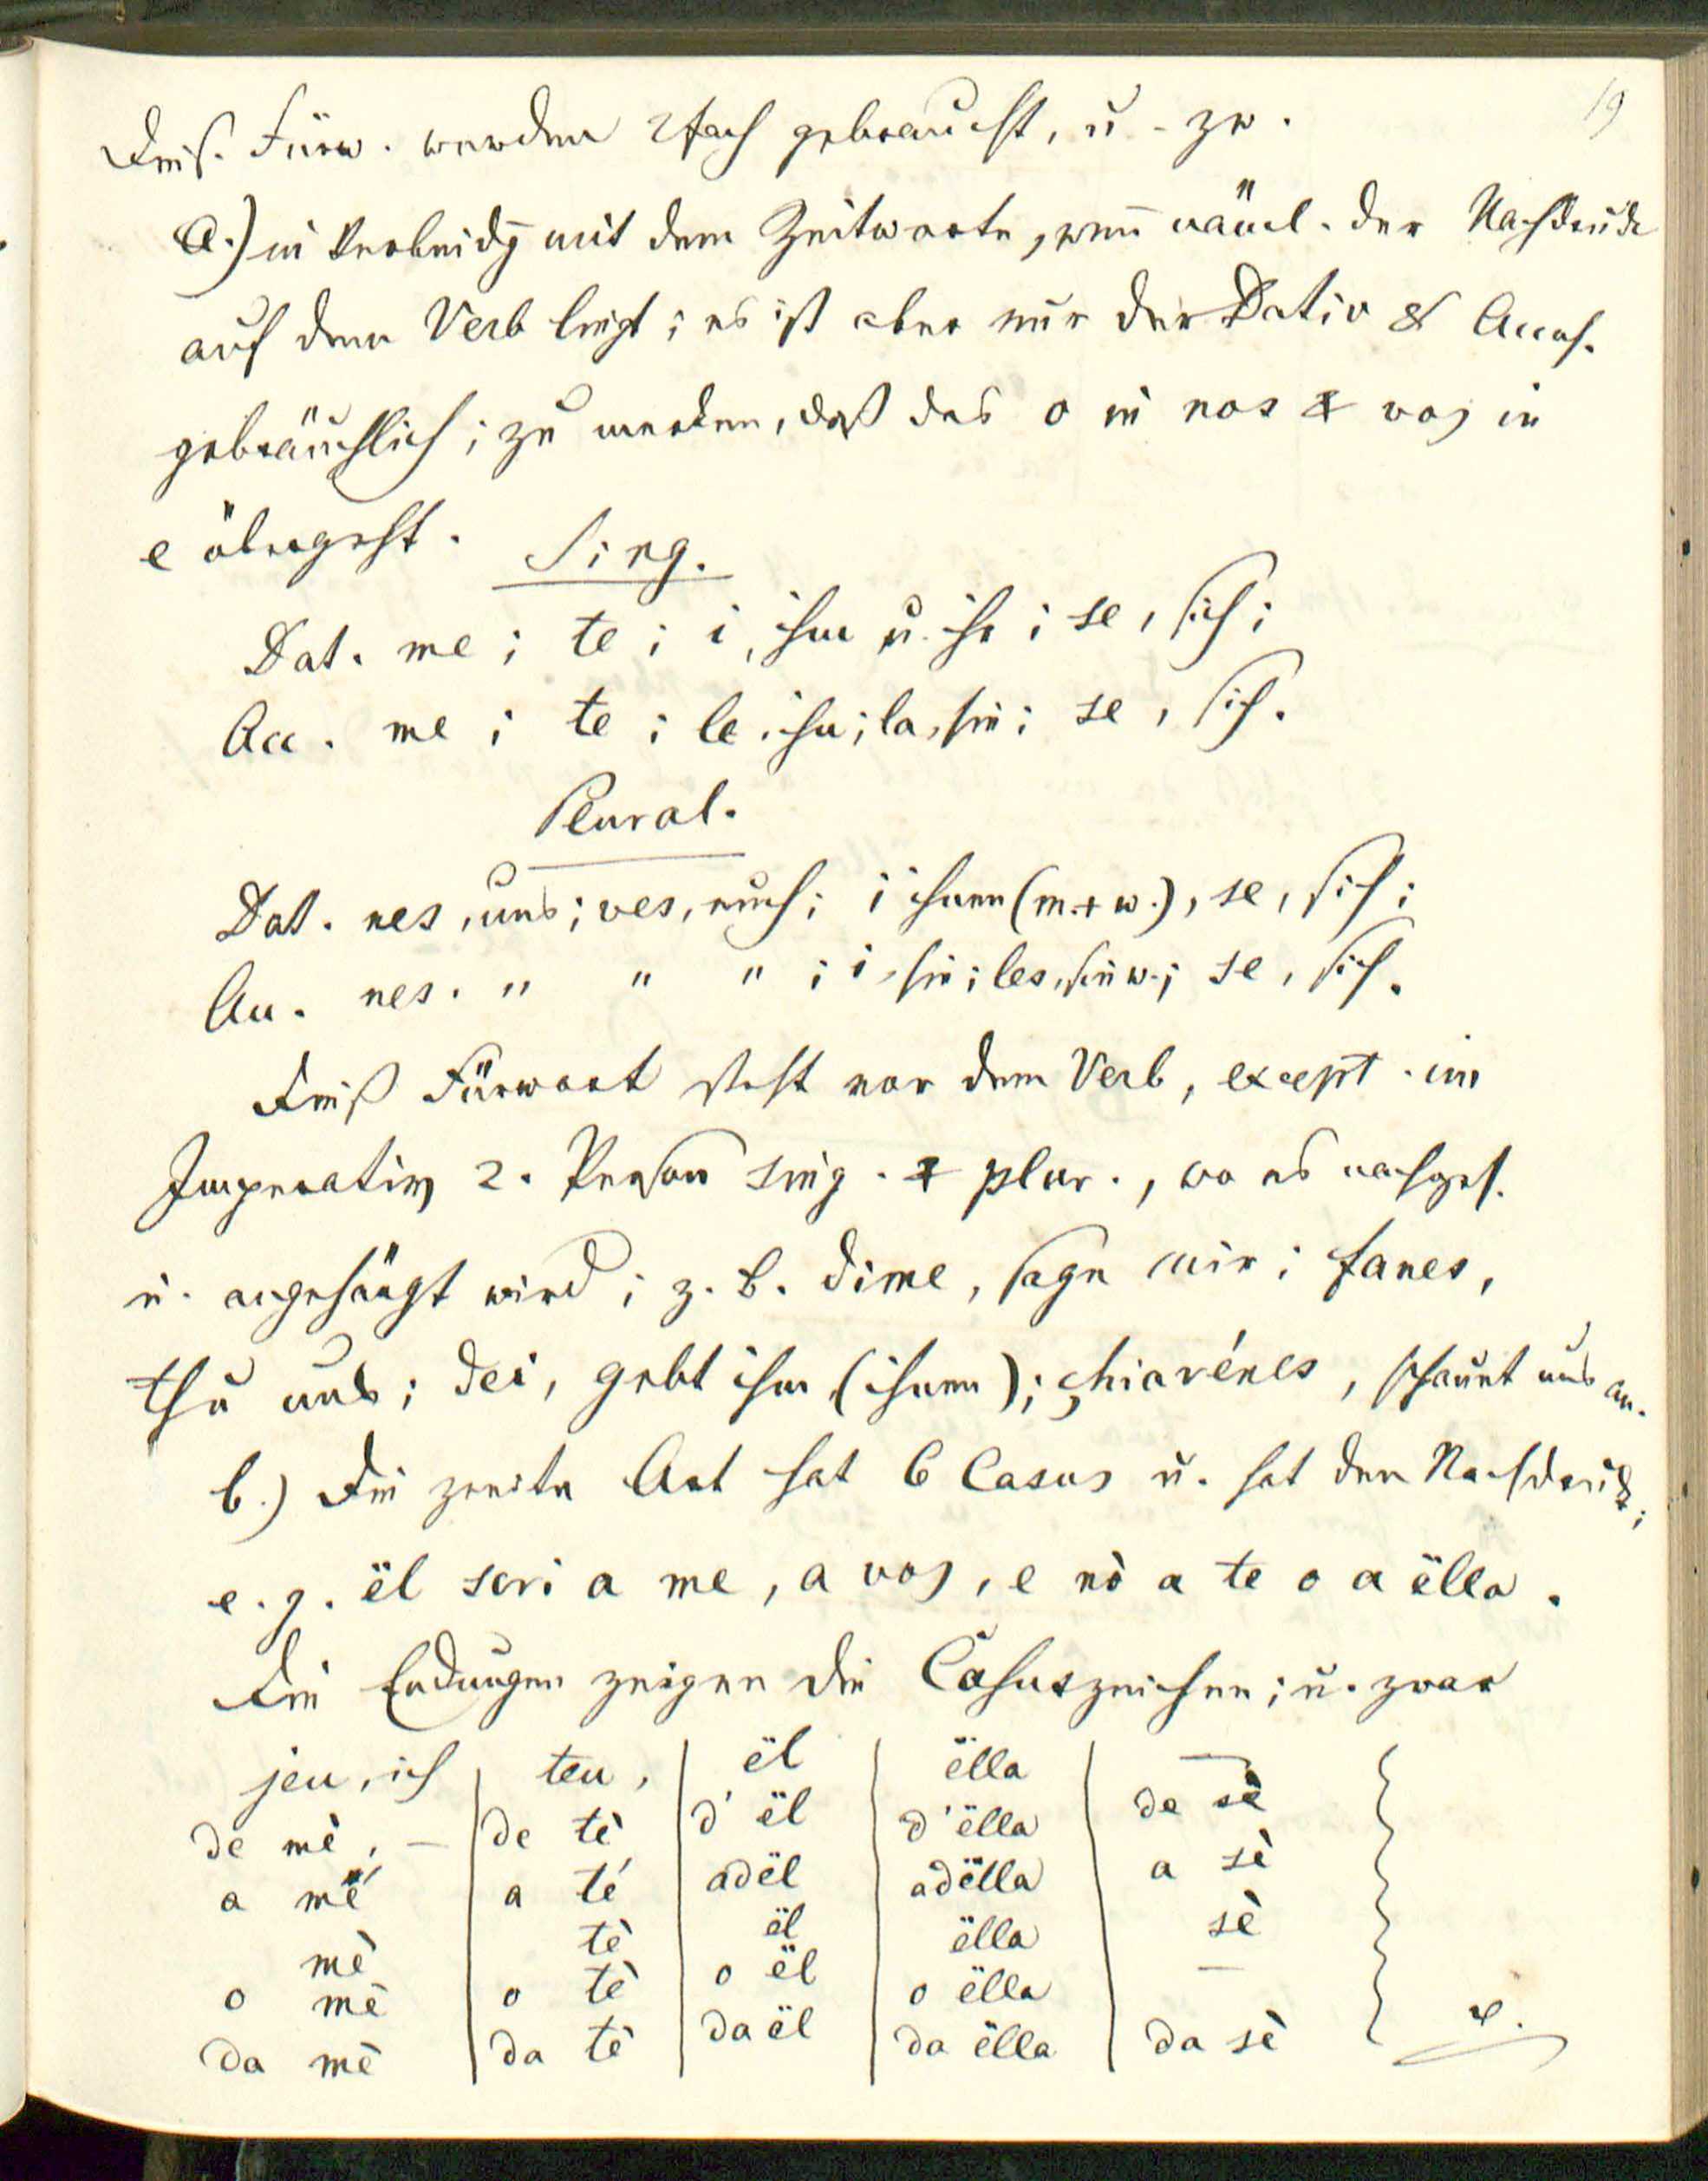 19
Dies. Fürw. werden 2fach gebraucht, u. zw.
a.) in Verbindg mit dem Zeitworte, wen̄ näml. der Nachdruck
auf dem Verb liegt; es ist aber nur der Dativ & Accus.
gebräuchlich; zu merken, daß das o in nos & vos in
e übergeht. Sing.
Dat. me; te; i, ihm u. ihr; se, sich;
Acc. me; te; le, ihn; la, sie; se, sich.
Plural.
Dat. nes, uns; ves, euch; i ihnen (m. + w.), se, sich;
Acc. nes. " " "; i, sie; les, sie w.; se, sich.
Dieß Fürwort steht vor dem Verb, except. im
Imperativ 2. Person sing. & plur., wo es nachges.
u. angehängt wird; z. B. dime, sage mir; fanes,
thu uns; dei, gebt ihm (ihnen); chiarénes, schaut uns an.
b.) Die zweite Art hat 6 Casus u. hat den Nachdruck;
e. g. ël scri a me, a vos, e nò a te o a ëlla.
Die Endungen zeigen die Casuszeichen; u. zwar
jeu, ich | teu, | ël | ëlla | —
de mè, — | de tè | d' ël | d'ëlla | de sè
a mé | a té | adël | adëlla | a sè
mè | tè | ël | ëlla | sè
o mè | o tè | o ël | o ëlla | —
da mè | da tè | da ël | da ëlla | da sè